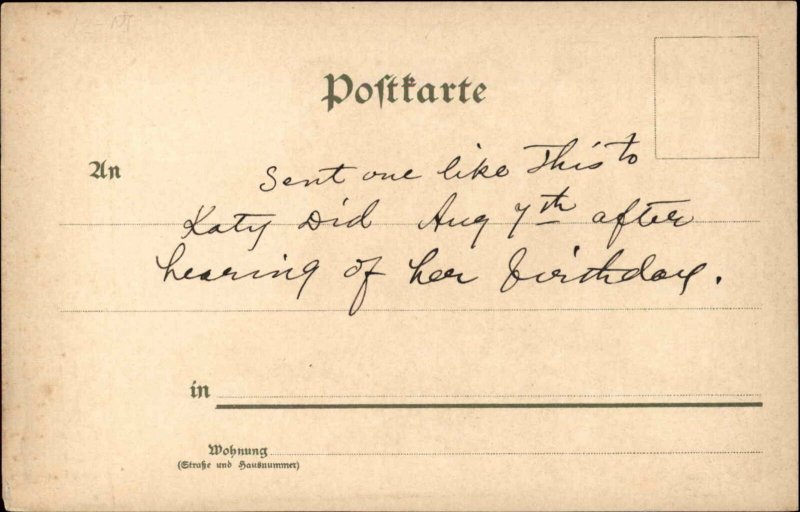 Postkarte
An
Sent one like This to
Katy Did Aug 7th after
hearing of her birthday.
in
Wohnung
(Straße und Hausnummer)